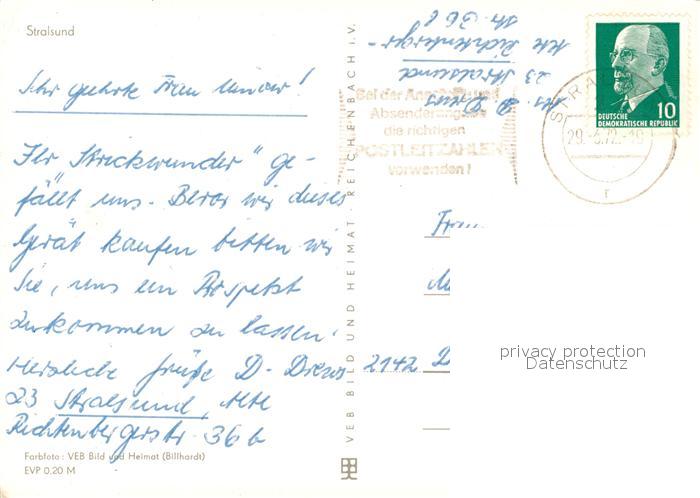 Stralsund
Sehr geehrte Frau Minaer!
Ihr Strickwunder" ge-
fällt uns. Bevor wir dieses
Gerät kaufen bitten wir
Sie, uns ein Prospekt
zukommen zu lassen.
Herzliche Grüße D. Drews
23 Stralsund, Alte
Richtenbergerstr. 36 b
Farbfoto: VEB Bild und Heimat (Billhardt)
EVP 0,20 M
VEB BILD UND HEIMAT REICHENBACH i.V.
Abs. D. Drews
23 Stralsund
Alte Richtenberger-
str. 36 b
Bei der
Absenderangabe
die richtigen
POSTLEITZAHLEN
verwenden!
STRA
29.-6.72.-18
r
10
DEUTSCHE
DEMOKRATISCHE REPUBLIK
Frau
2142
privacy protection
Datenschutz